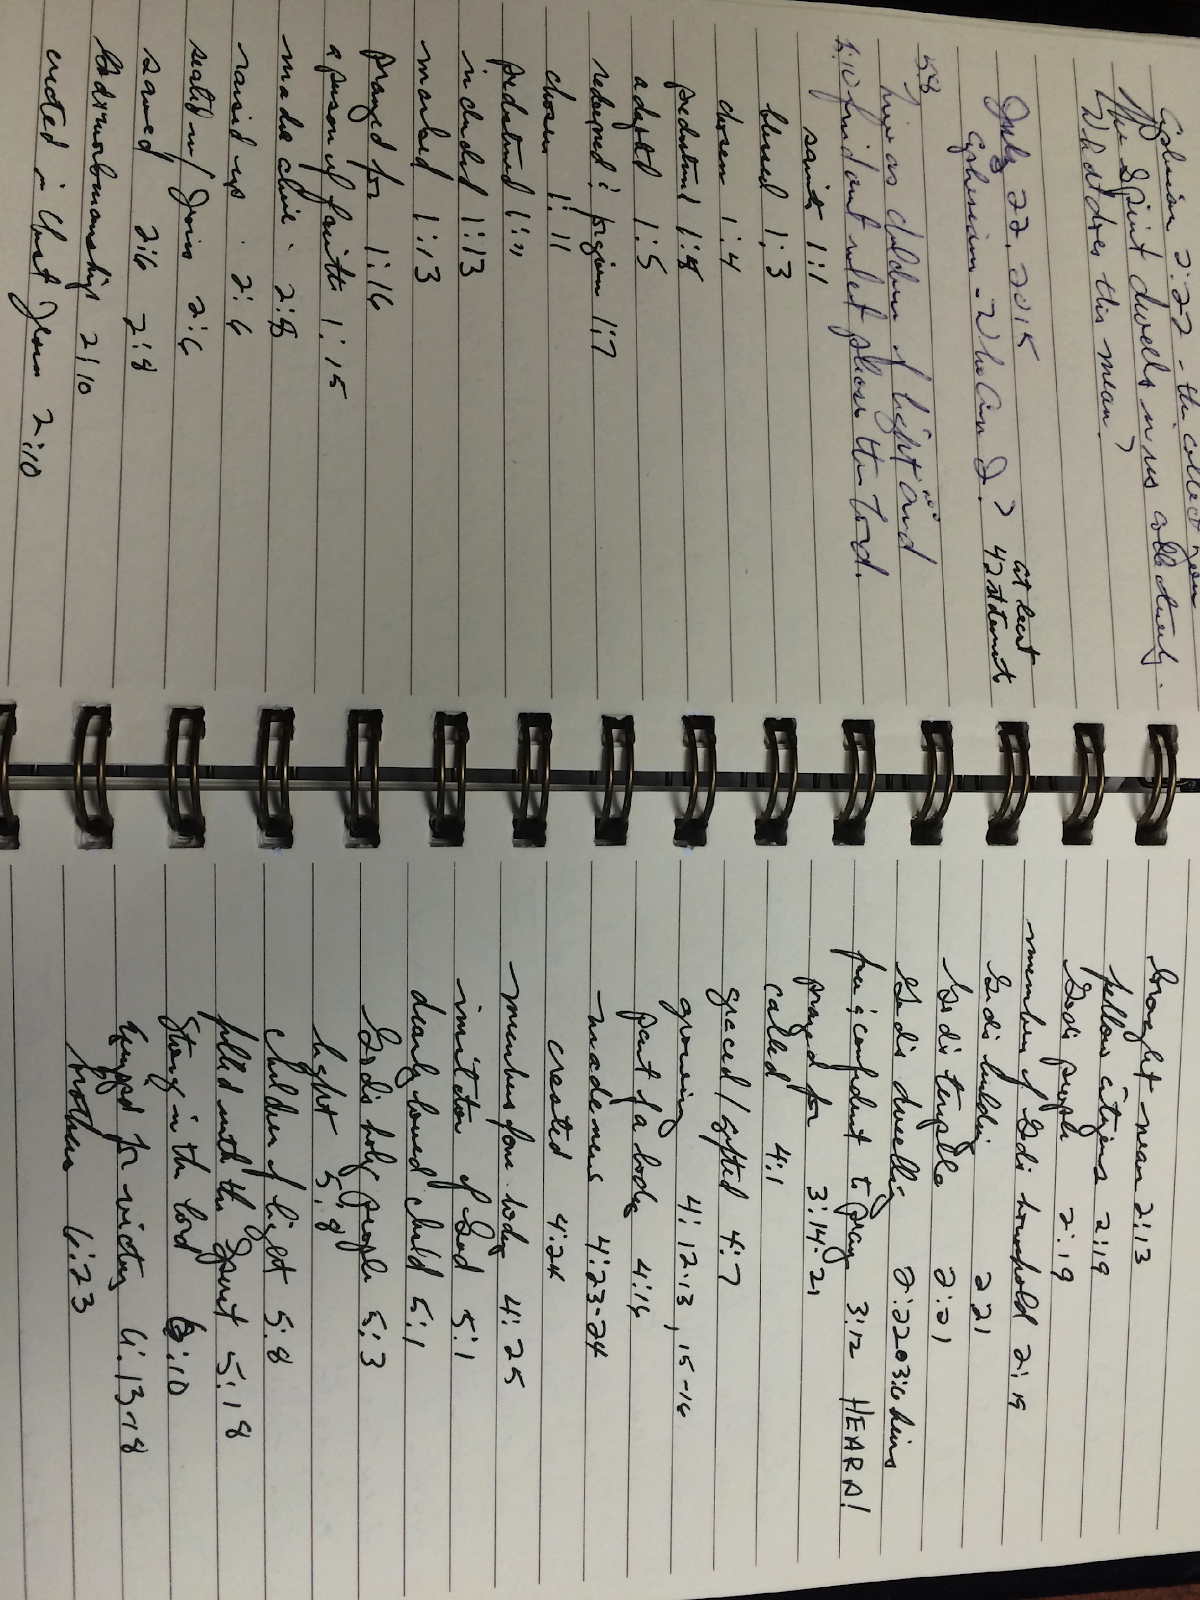 Ephesian 2:22 - the collect you
The Spirit dwells in us collectively.
What does this mean?
July 22, 2015
Ephesian - Who Am I?
at least
42 statements
5:8
Live as children of light and
5:10 find out what please the Lord.
saint 1:1
blessed 1:3
chosen 1:4
predestined 1:5
adopted 1:5
redeemed & forgiven 1:7
chosen 1:11
predestined 1:11
included 1:13
marked 1:13
prayed for 1:16
a person of faith 1:15
made alive 2:5
raised up 2:6
seated w/ Jesus 2:6
saved 2:6 2:8
God's workmanship 2:10
created in Christ Jesus 2:10
brought near 2:13
fellow citizens 2:19
God's people 2:19
member of God's household 2:19
God's building 2:21
God's temple 2:21
God's dwelling 2:22 3:6 heirs
free & confident to pray 3:12 HEARD!
prayed for 3:14-21
called 4:1
graced / gifted 4:7
growing 4:12-13, 15-16
part of a body 4:16
made new 4:23-24
created 4:24
members of one body 4:25
imitator of God 5:1
dearly loved child 5:1
God's holy people 5:3
light 5:8
children of light 5:8
filled with the Spirit 5:18
strong in the Lord 6:10
equipped for victory 6:13-18
brothers 6:23